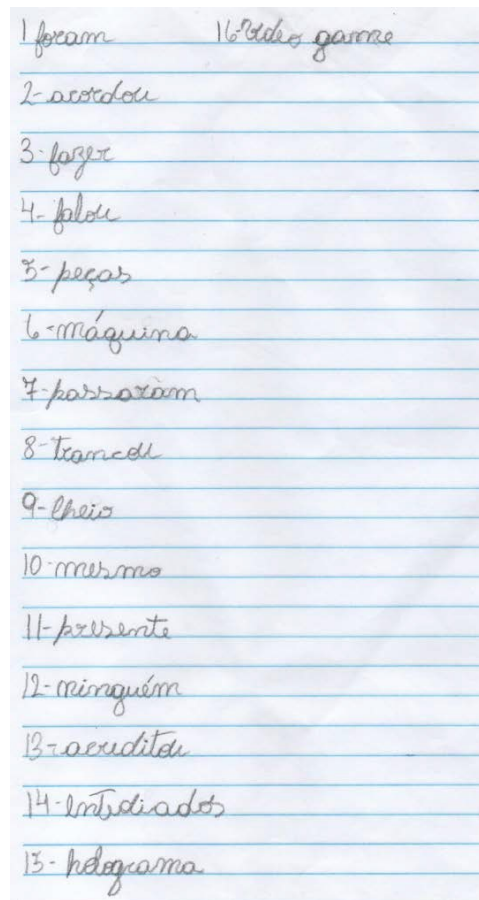 1 foram 16-Video game
2-acordou
3-fazer
4-falou
5-peças
6-máquina
7-passaram
8-trancou
9-cheio
10-mesmo
11-presente
12-ninguém
13-acreditou
14-entediados
15-holograma